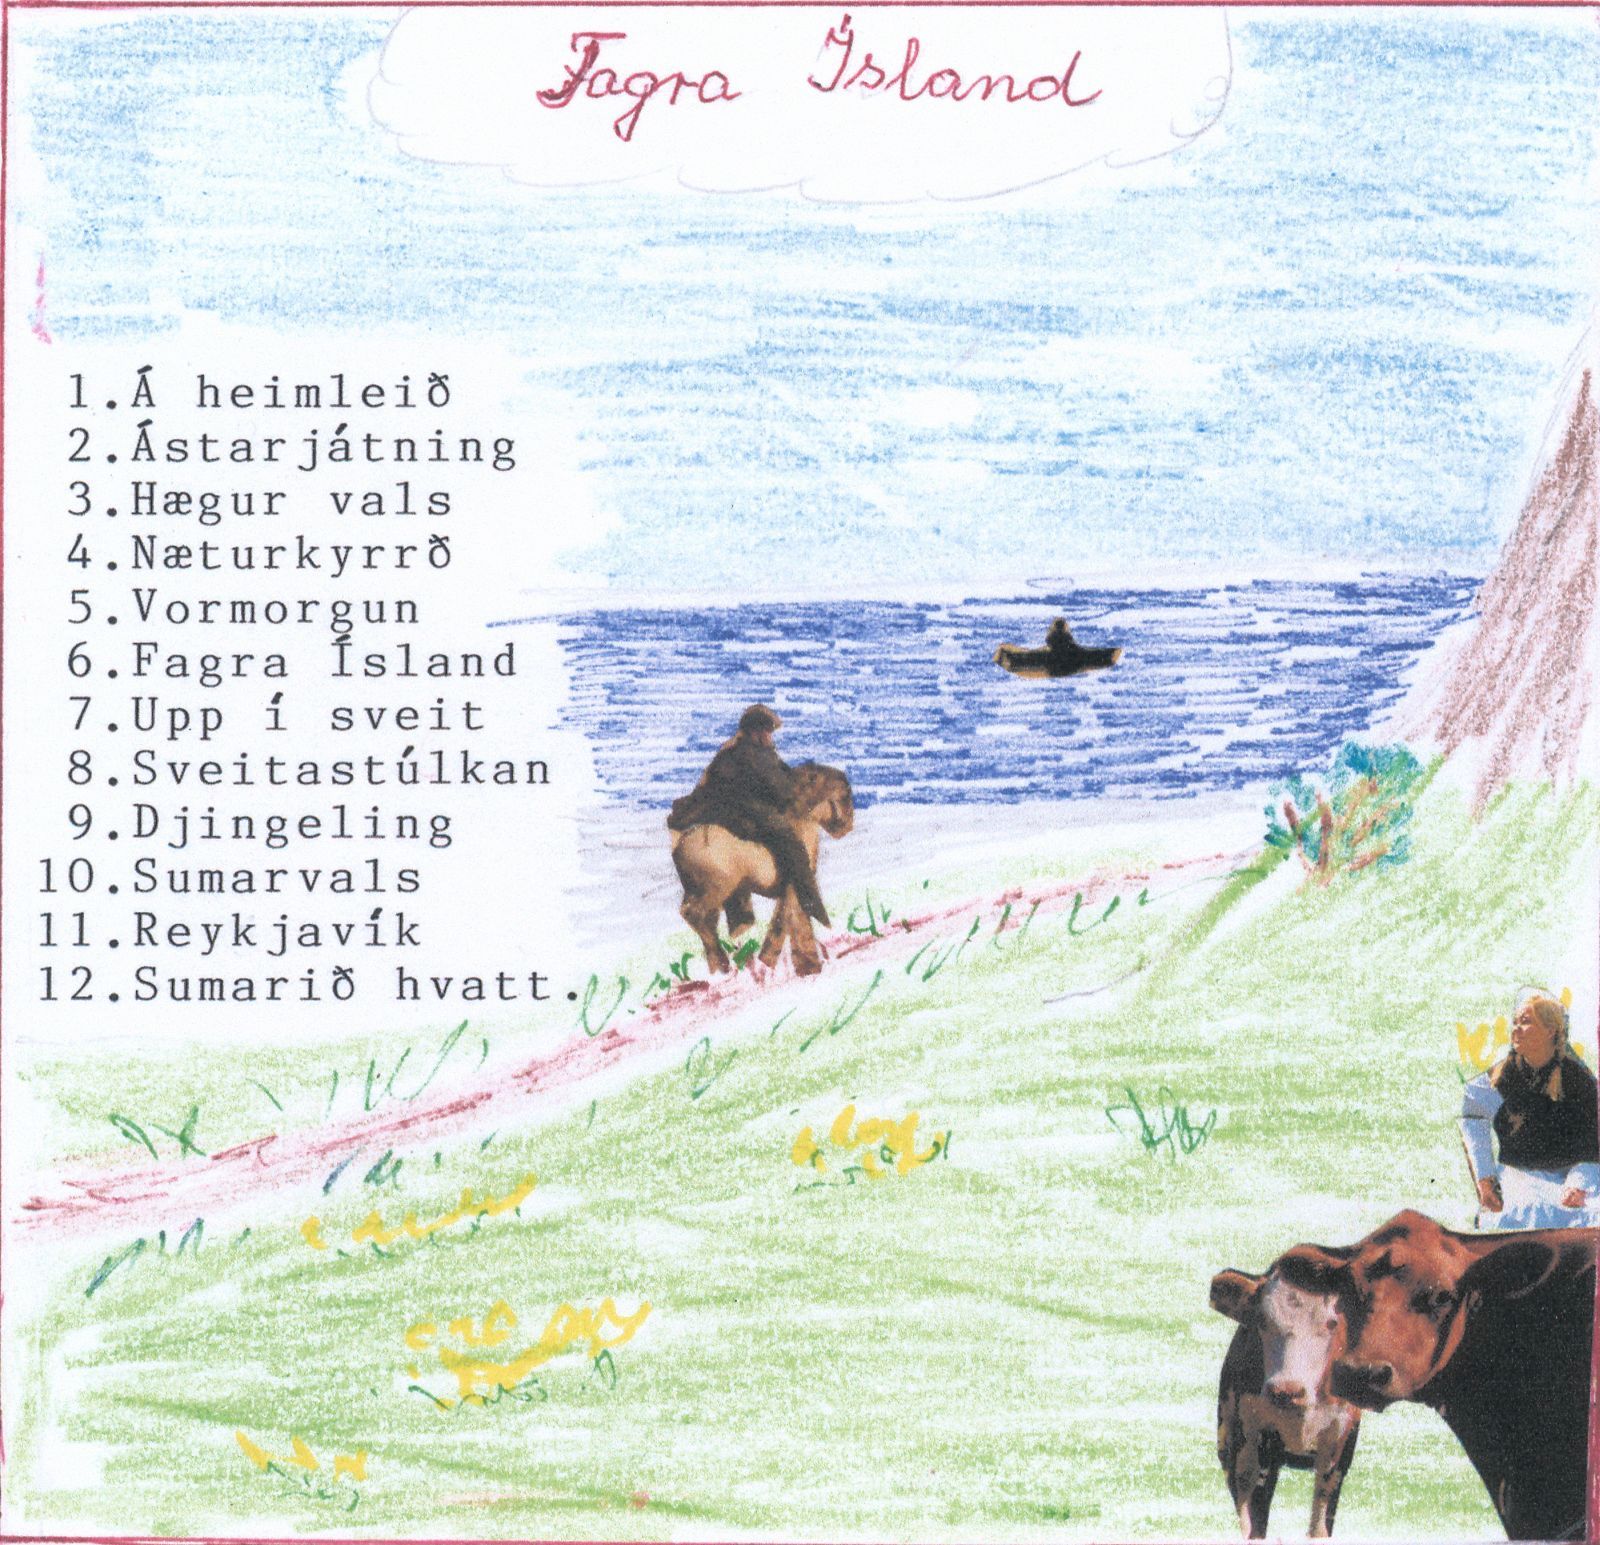 Fagra Ísland
1.Á heimleið
2.Ástarjátning
3.Hægur vals
4.Næturkyrrð
5.Vormorgun
6.Fagra Ísland
7.Upp í sveit
8.Sveitastúlkan
9.Djingeling
10.Sumarvals
11.Reykjavík
12.Sumarið hvatt.